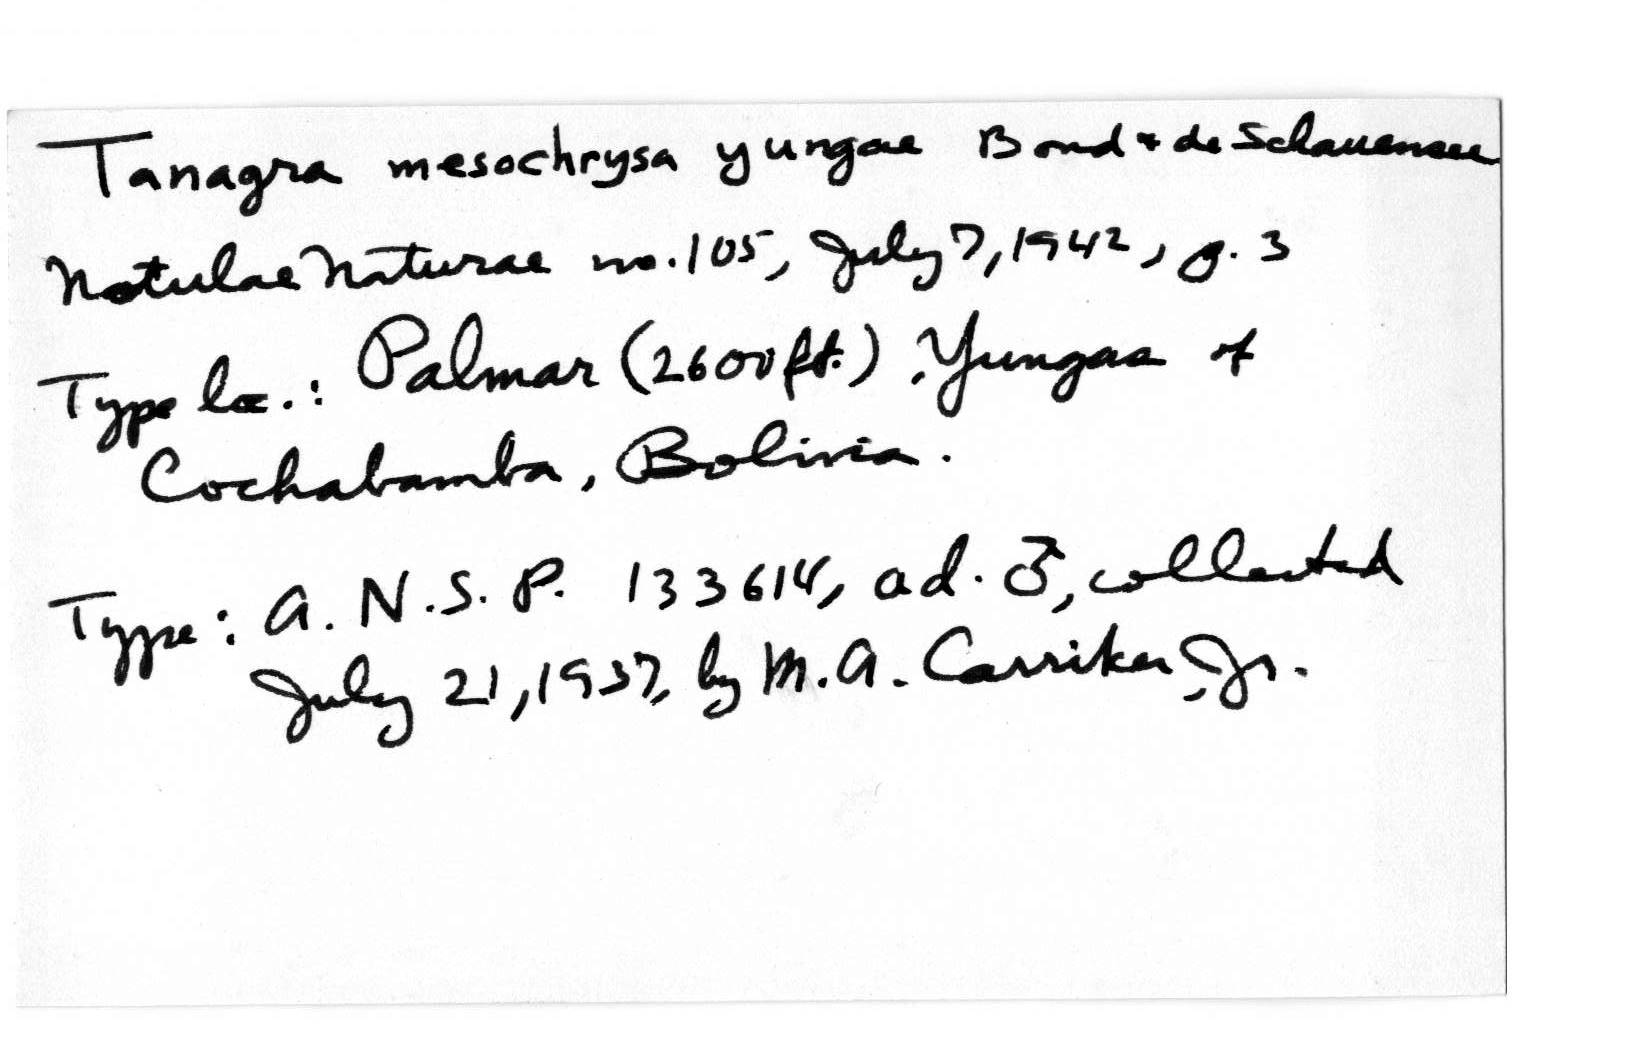 Tanagra mesochrysa yungae Bond & de Schauensee
Notulae Naturae no. 105, July 7, 1942, p. 3
Type loc.: Palmar (2600 ft.), Yungas of
Cochabamba, Bolivia.
Type: A.N.S.P. 133614, ad. ♂, collected
July 21, 1937, by M.A. Carriker, Jr.